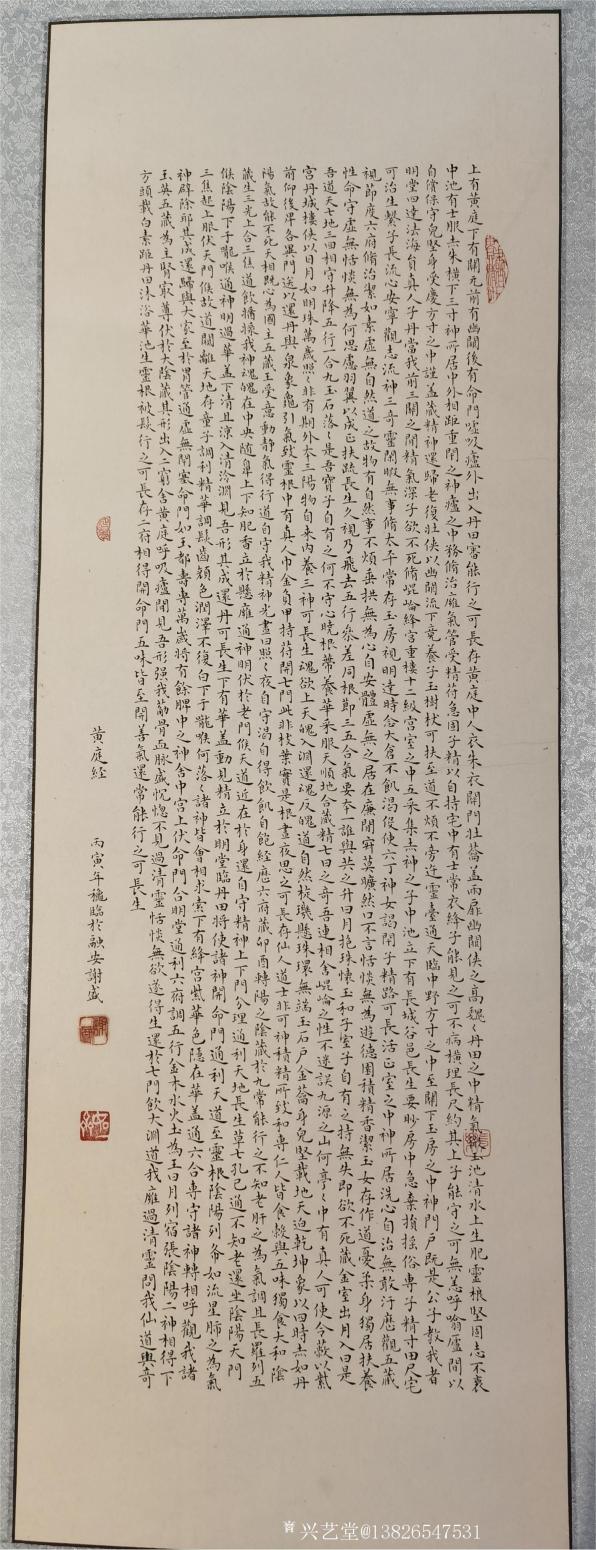 上有黃庭下有關元前有幽闕後有命門噓吸廬外出入丹田審能行之可長存黃庭中人衣朱衣關門壯籥蓋兩扉幽闕俠之高魏〻丹田之中精氣微玉池清水上生肥靈根堅固志不衰
中池有士服赤朱橫下三寸神所居中外相距重閉之神廬之中務脩治廱氣管受精符急固子精以自持宅中有士常衣絳子能見之可不病橫理長尺約其上子能守之可無恙呼噏廬間以
自償保守皃堅身受慶方寸之中謹蓋藏精神還歸老復壯俠以幽闕流下竟養子玉樹杖可扶至道不煩不旁迕靈臺通天臨中野方寸之中至關下玉房之中神門戶既是公子教我者
明堂四達法海員真人子丹當我前三關之間精氣深子欲不死脩崐崘絳宮重樓十二級宮室之中五采集赤神之子中池立下有長城谷邑長生要眇房中急棄捐搖俗專子精寸田尺宅
可治生繫子長流心安寧觀志流神三奇靈閑暇無事脩太平常存玉房視明達時念大倉不飢渴役使六丁神女謁閉子精路可長活正室之中神所居洗心自治無敢汙歷觀五藏
視節度六府脩治潔如素虛無自然道之故物有自然事不煩垂拱無為心自安體虛無之居在廉間寂莫曠然口不言恬惔無為遊德園積精香潔玉女存作道憂柔身獨居扶養
性命守虛無恬惔無為何思慮羽翼以成正扶疏長生久視乃飛去五行參差同根節三五合氣要本一誰與共之升日月抱珠懷玉和子室子自有之持無失即欲不死藏金室出月入日是
吾道天七地三回相守升降五行一合九玉石落〻是吾寶子自有之何不守心曉根蔕養華采服天順地合藏精七日之奇吾連相舍崐崘之性不迷誤九源之山何亭〻中有真人可使令蔽以紫
宮丹城樓俠以日月如明珠萬歲照〻非有期外本三陽物自來內養三神可長生魂欲上天魄入淵還魂反魄道自然旋璣懸珠環無端玉石戶金籥身皃堅載地天迫乾坤象以四時赤如丹
前仰後卑各異門送以還丹與泉象龜引氣致靈根中有真人巾金負甲持荷開七門此非枝葉實是根晝夜思之可長存仙人道士非可神積精所致和專仁人皆食穀與五味獨食大和陰
陽氣故能不死天相既心為國主五藏王受意動靜氣得行道自守我精神光晝日照〻夜自守渴自得飲飢自飽經歷六府藏卯酉轉陽之陰藏於九常能行之不知老肝之為氣調且長羅列五
藏生三光上合三焦道飲㨾我神魂魄在中央隨鼻上下知肥香立於懸廱通神明伏於老門候天道近在於身還自守精神上下門分理通利天地長生草七孔已通不知老還坐陰陽天門
候陰陽下于嚨喉通神明過華蓋下清且涼入清泠淵見吾形其成還丹可長生下有華蓋動見精立於明堂臨丹田將使諸神開命門通利天道至靈根陰陽列布如流星肺之為氣
三焦起上服伏天門候故道闚離天地存童子調利精華調髮齒顏色潤澤不復白下于嚨喉何落〻諸神皆會相求索下有絳宮紫華色隱在華蓋通六合專守諸神轉相呼觀我諸
神辟除耶其成還歸與大家至於胃管通虛無閉塞命門如玉都壽專萬歲將有餘脾中之神舍中宮上伏命門合明堂通利六府調五行金木水火土為王日月列宿張陰陽二神相得下
玉英五藏為主腎寂尊伏於大陰藏其形出入二竅舍黃庭呼吸廬間見吾形强我葫骨血脉盛怳惚不見過清靈恬惔無欲遂得生還於七門飲大淵道我廱過清靈問我仙道與奇
方頭載白素距丹田沐浴華池生靈根被髮行之可長存二府相得開命門五味皆至開善氣還常能行之可長生
黃庭经
丙寅年穐臨於融安謝盛
兴艺堂@13826547531